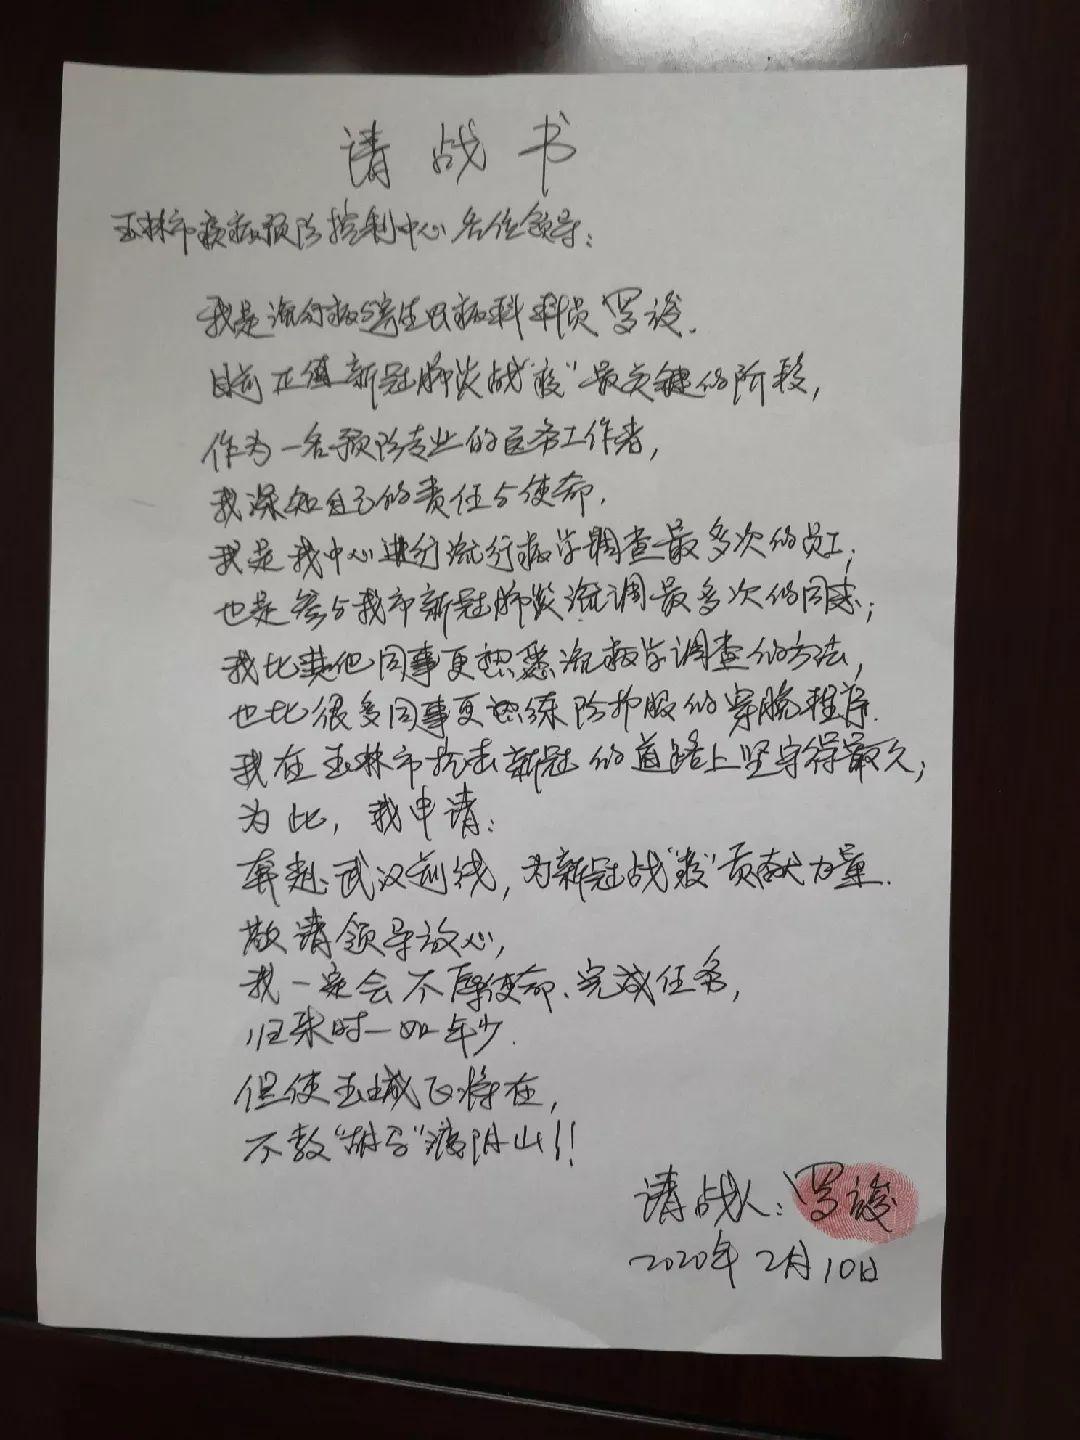 请战书
玉林市疾病预防控制中心各位领导：
我是流行病与寄生虫病科科员罗
目前正值新冠肺炎战“疫”最关键的阶段，
作为一名预防专业的医务工作者，
我深知自己的责任与使命.
我是我中心进行流行病学调查最多次的员工；
也是参与我市新冠肺炎流调最多次的同志；
我比其他同事更熟悉流病学调查的方法，
也比很多同事更熟练防护服的穿脱程序.
我在玉林市抗击新冠的道路上坚守得最久；
为此，我申请：
奔赴武汉前线，为新冠战“疫”贡献力量.
敬请领导放心，
我一定会不辱使命、完成任务，
归来时一如年少.
但使玉城飞将在，
不教“胡马”渡阴山！！
请战人：罗
2020年2月10日